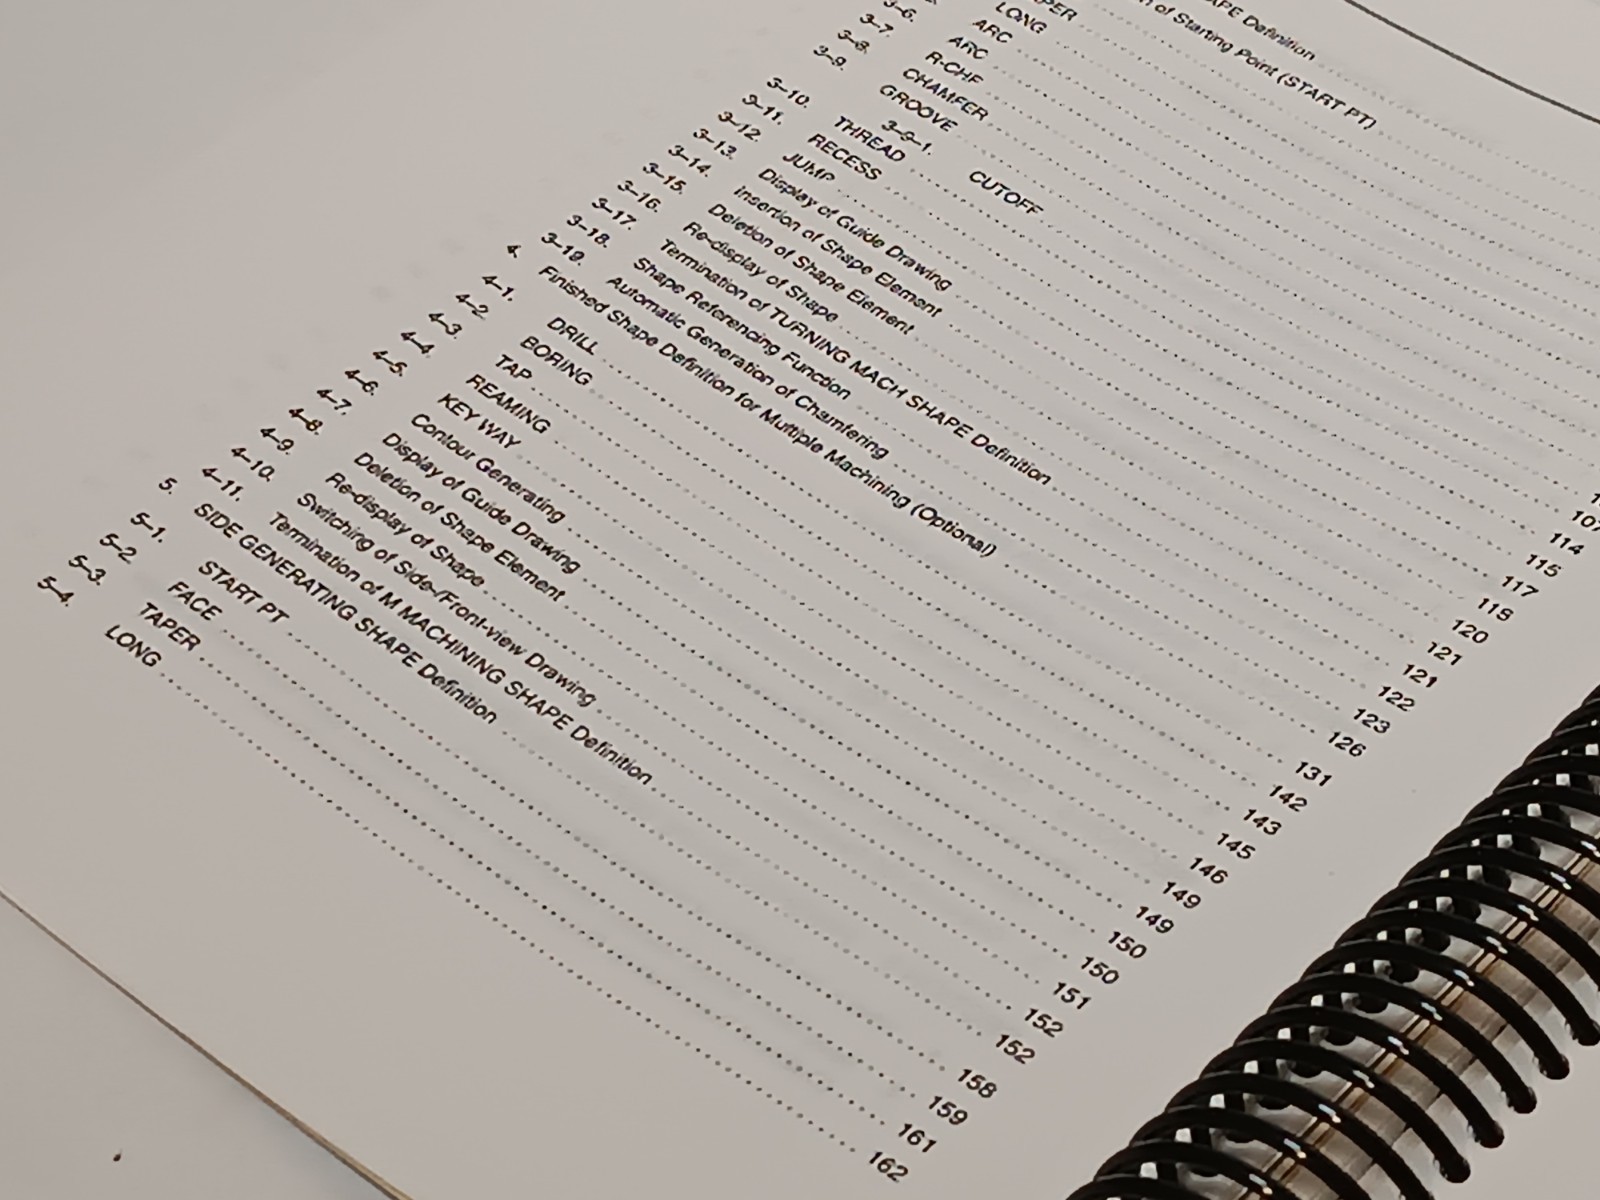 APE Definition
of Starting Point (START PT)
PER
LONG
3–6. ARC
ARC
3–7. R-CHF
3–8. CHAMFER
3–9. GROOVE
3–9–1. CUTOFF
3–10. THREAD 107
3–11. RECESS 114
3–12. JUMP 115
3–13. Display of Guide Drawing 117
3–14. Insertion of Shape Element 119
3–15. Deletion of Shape Element 120
3–16. Re-display of Shape 121
3–17. Termination of TURNING MACH SHAPE Definition 121
3–18. Shape Referencing Function 122
3–19. Automatic Generation of Chamfering 123
4. Finished Shape Definition for Multiple Machining (Optional) 126
4–1. DRILL 131
4–2. BORING 142
4–3. TAP 143
4–4. REAMING 145
4–5. KEY WAY 146
4–6. Contour Generating 149
4–7. Display of Guide Drawing 149
4–8. Deletion of Shape Element 150
4–9. Re-display of Shape 150
4–10. Switching of Side-/Front-view Drawing 151
4–11. Termination of M MACHINING SHAPE Definition 152
5. SIDE GENERATING SHAPE Definition 152
5–1. START PT 158
5–2. FACE 159
5–3. TAPER 161
5–4. LONG 162